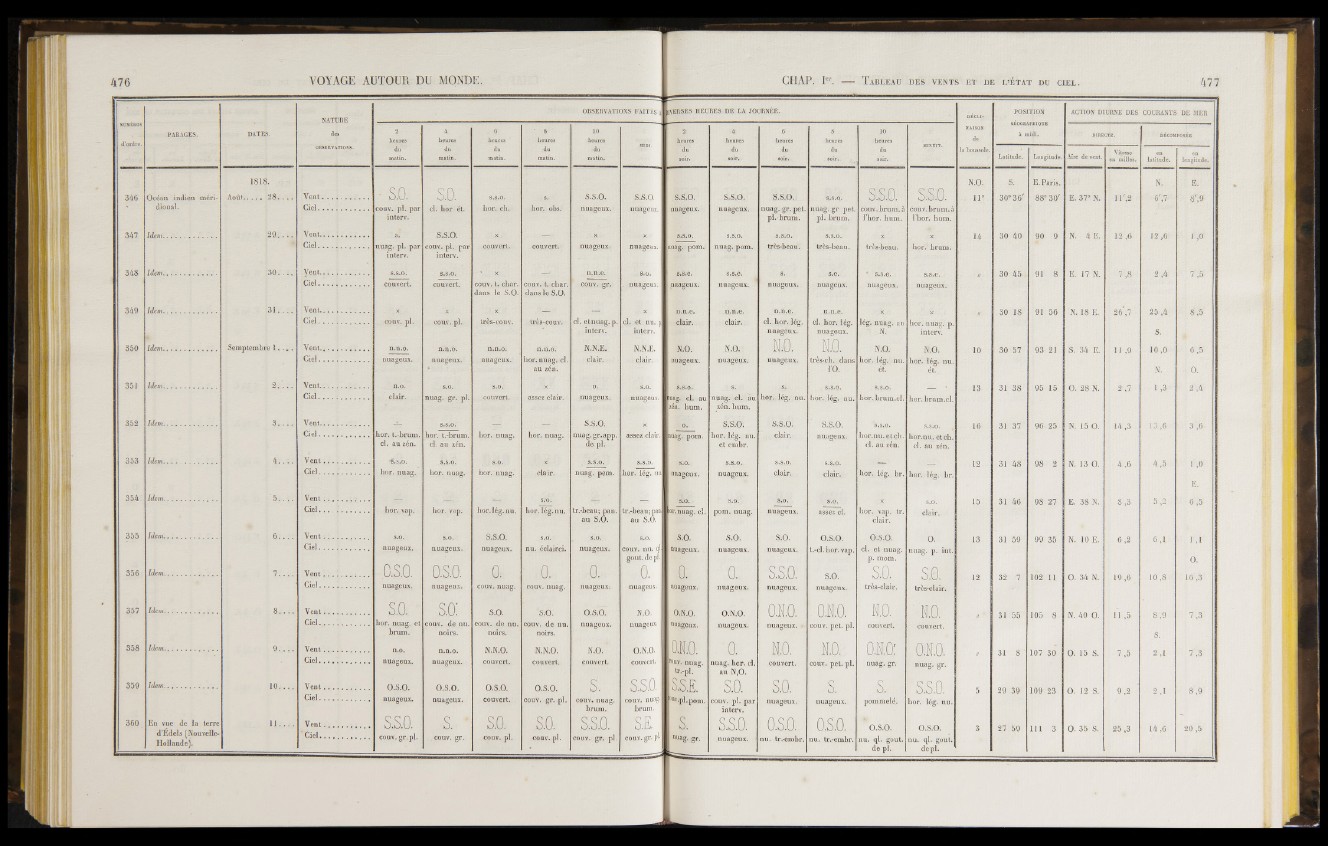 476
VOYAGE AUTOUR DU MONDE.
NUMÉROS d'ordre.
PARAGES.
DATES.
NATURE des OBSERVATIONS.
OBSERVATIONS FAITES
2 heures du matin.
4 heures du matin.
6 heures du matin.
8 heures du matin.
10 heures du matin.
MIDI
1818.
346 Océan indien méridional. Août..... 28....
Vent S.O. S.O. s.s.o. s. S.S.O. S.S.O.
Ciel couv. pl. par interv. cl. hor. ét. hor. ch. hor. obs. nuageux. nuageux.
347 Idem. 29....
Vent s. S.S.O. x — x x
Ciel nuag. pl. par interv. couv. pl. par interv. couvert. couvert. nuageux. nuageux.
348 Idem. 30....
Vent s.s.o. s.s.o. x — n.n.e. s.o.
Ciel couvert. couvert. couv. t. char. dans le S.O. couv. t. char. dans le S.O. couv. gr. nuageux.
349 Idem. 31....
Vent x x x — — x
Ciel couv. pl. couv. pl. très-couv. très-couv. cl. et nuag. p. interv. cl. et nu. interv.
350 Idem. Semptembre 1....
Vent n.n.o. n.n.o. n.n.o. n.n.o. N.N.E. N.N.E.
Ciel nuageux. nuageux. nuageux. hor. nuag. cl. au zén. clair. clair.
351 Idem. 2....
Vent n.o. s.o. s.o. x o. s.o.
Ciel clair. nuag. gr. pl. couvert. assez clair. nuageux. nuageux.
352 Idem. 3....
Vent — s.s.o. — — S.S.O. x
Ciel hor. t.-brum. cl. au zén. hor. t.-brum. cl. au zén. hor. nuag. hor. nuag. nuag. gr. app. de pl. assez clair.
353 Idem. 4....
Vent s.s.o. s.s.o. s.o. x s.s.o. s.s.o.
Ciel hor. nuag. hor. nuag. hor. nuag. clair. nuag. pom. hor. lég.
354 Idem. 5....
Vent — — — s.o. — —
Ciel hor. vap. hor. vap. hor. lég. nu. hor. lég. nu. tr.-beau; pan. au S.O. tr.-beau; pan. au S.O.
355 Idem. 6....
Vent s.o. s.o. S.S.O. s.o. s.o. s.o.
Ciel nuageux. nuageux. nuageux. nu. éclairci. nuageux. couv. nu. gout. de pl
356 Idem. 7....
Vent O.S.O. O.S.O. O. O. O. O.
Ciel nuageux. nuageux. couv. nuag. couv. nuag. nuageux. nuageux
357 Idem. 8....
Vent S.O. S.O. S.O. S.O. O.S.O. N.O.
Ciel hor. nuag. et brum. couv. de nu. noirs. couv. de nu. noirs. couv. de nu. noirs. nuageux. nuageux
358 Idem. 9....
Vent n.o. n.n.o. N.N.O. N.N.O. N.O. O.N.O.
Ciel nuageux. nuageux. couvert. couvert. couvert. couvert.
359 Idem. 10....
Vent O.S.O. O.S.O. O.S.O. O.S.O. S. S.S.O
Ciel nuageux. nuageux. couvert. couv. gr. pl. couv. nuag. brum. couv. nuag. brum.
360 En vue de la terre d'Édels (Nouvelle-Hollande). 11....
Vent S.S.O. S. S.O. S.O. S.S.O. S.E
Ciel couv. gr. pl. couv. gr. couv. pl. couv. pl. couv. gr. pl couv. gr. pl
CHAP. Ier. — TABLEAU DES VENTS ET DE L'ÉTAT DU CIEL.
477
DIVERSES HEURES DE LA JOURNÉE.
2 heures du soir.
4 heures du soir.
6 heures du soir.
8 heures du soir.
10 heures du soir.
MINUIT.
DÉCLINAISON de la boussole.
POSITION GÉOGRAPHIQUE à midi.
Latitude. Longitude.
ACTION DIURNE DES COURANTS DE MER
DIRECTE. DÉCOMPOSÉE
Aire de vent. Vitesse en milles. en latitude. en longitude.
N.O. S. E. Paris. N. E.
S.S.O. S.S.O. S.S.O. s.s.o. S.S.O. S.S.O. 11° 30°36' 88°30' E. 37° N. 11',2 6',7 8',9
nuageux. nuageux. nuag. gr. pet. pl. brum. nuag. gr. pet. pl. brum. couv. brum. à l'hor. hum. couv. brum. à l'hor. hum.
s.s.o. s.s.o. s.s.o. s.s.o. x x 14 30 40 90 9 N. 4 E. 12,6 12,6 1,0
nuag. pom. nuag. pom. très-beau. très-beau. très-beau. hor. brum.
s.s.e. s.s.e. s. s.e. s.s.e. s.s.e. » 30 45 91 8 E. 17 N. 7,8 2,4 7,5
nuageux. nuageux. nuageux. nuageux. nuageux. nuageux.
n.n.e. n.n.e. n.n.e. n.n.e. x x » 30 18 91 56 N. 18 E. 26,7 25,4 8,5
clair. clair. cl. hor. lég. nuageux. cl. hor. lég. nuageux. lég. nuag. au N. hor. nuag. p. interv.
S.
N.O. N.O. N.O. N.O. N.O. N.O. 10 30 57 93 21 S. 34 E. 11,9 10,0 6,5
nuageux. nuageux. nuageux. très-ch. dans l'O. hor. lég. nu. ét. hor. lég. nu. ét.
N. O.
s.s.o. s. s. s.s.o. s.s.o. — 13 31 38 95 15 O. 28 N. 2,7 1,3 2,4
nuag. cl. au zén. hum. nuag. cl. au zén. hum. hor. lég. nu. hor. lég. nu. hor. brum. cl. hor. brum. cl.
o. S.S.O. S.S.O. S.S.O. s.s.o. s.s.o. 16 31 37 96 25 N. 15 O. 14,3 13,6 3,6
nuag. pom. hor. lég. nu. et embr. clair. nuageux. hor. nu. et ch. cl. au zén. hor. nu. et ch. cl. au zén.
s.o. s.s.o. s.s.o. s.s.o. — — 12 31 48 98 2 N. 13 O. 4,6 4,5 1,0
nuageux. nuageux. clair. clair. hor. lég. br. hor. lég. br.
E.
s.o. s.o. s.o. s.o. x s.o. 15 31 46 98 27 E. 38 N. 8,3 5,2 6,5
hor. nuag. cl. pom. nuag. nuageux. assez cl. hor. vap. tr. clair. clair.
S.O. S.O. S.O. O.S.O. O.S.O. O. 13 31 59 99 35 N. 10 E. 6,2 6,1 1,1
nuageux. nuageux. nuageux. t.-cl. hor. vap. cl. et nuag. p. mom. nuag. p. int.
O.
O. O. S.S.O. S.O. S.O. S.O. 12 32 7 102 11 O. 34 N. 19,6 10,8 16,3
nuageux. nuageux. nuageux. nuageux. très-clair. très-clair.
O.N.O. O.N.O. O.N.O. O.N.O. N.O. N.O. » 31 55 105 8 N. 40 O. 11,5 8,9 7,3
nuageux. nuageux. nuageux. couv. pet. pl. couvert. couvert.
S.
O.N.O. O. N.O. N.O. O.N.O. O.N.O. » 31 8 107 30 O. 15 S. 7,5 2,1 7,3
couv. nuag. tr.-pl. nuag. hor. cl. au N.O. couvert. couv. pet. pl. nuag. gr. nuag. gr.
S.S.E. S.O. S.O. S. S. S.S.O. 5 29 39 109 23 O. 12 S. 9,2 2,1 8,9
pl. pom. couv. pl. par interv. nuageux. nuageux. pommelé. hor. lég. nu.
S. S.S.O. O.S.O. O.S.O. O.S.O. O.S.O. 3 27 50 111 3 O. 35 S. 25,3 14,6 20,5
nuag. gr. nuageux. nu. tr.-embr. nu. tr.-embr. nu. ql. gout. de pl. nu. ql. gout. de pl.